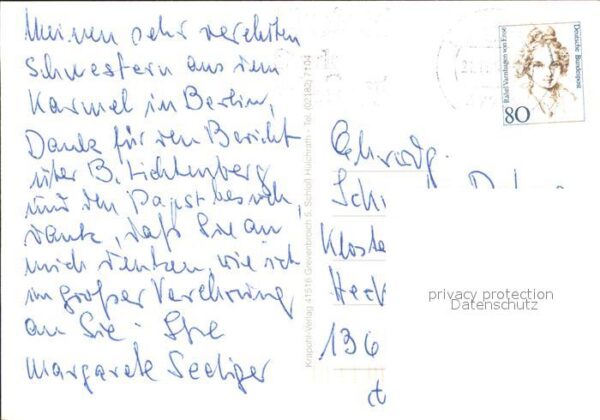 Meinen sehr verehrten
Schwestern aus dem
Karmel in Berlin,
Dank für den Bericht
über B. Lichtenberg
und den Papstbesuch,
dank, daß Sie an
mich denken, wie ich
in großer Verehrung
an Sie. Ihre
Margarete Seeliger
Krapohl-Verlag 41516 Grevenbroich 5, Schloß Hülchrath · Tel. (02182) 7104
Rahel Varnhagen von Ense
Deutsche Bundespost
80
Ehrwdg.
Schw
Kloste
Heck
136
privacy protection
Datenschutz